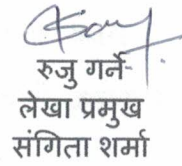 रुजु गर्ने
लेखा प्रमुख
संगिता शर्मा